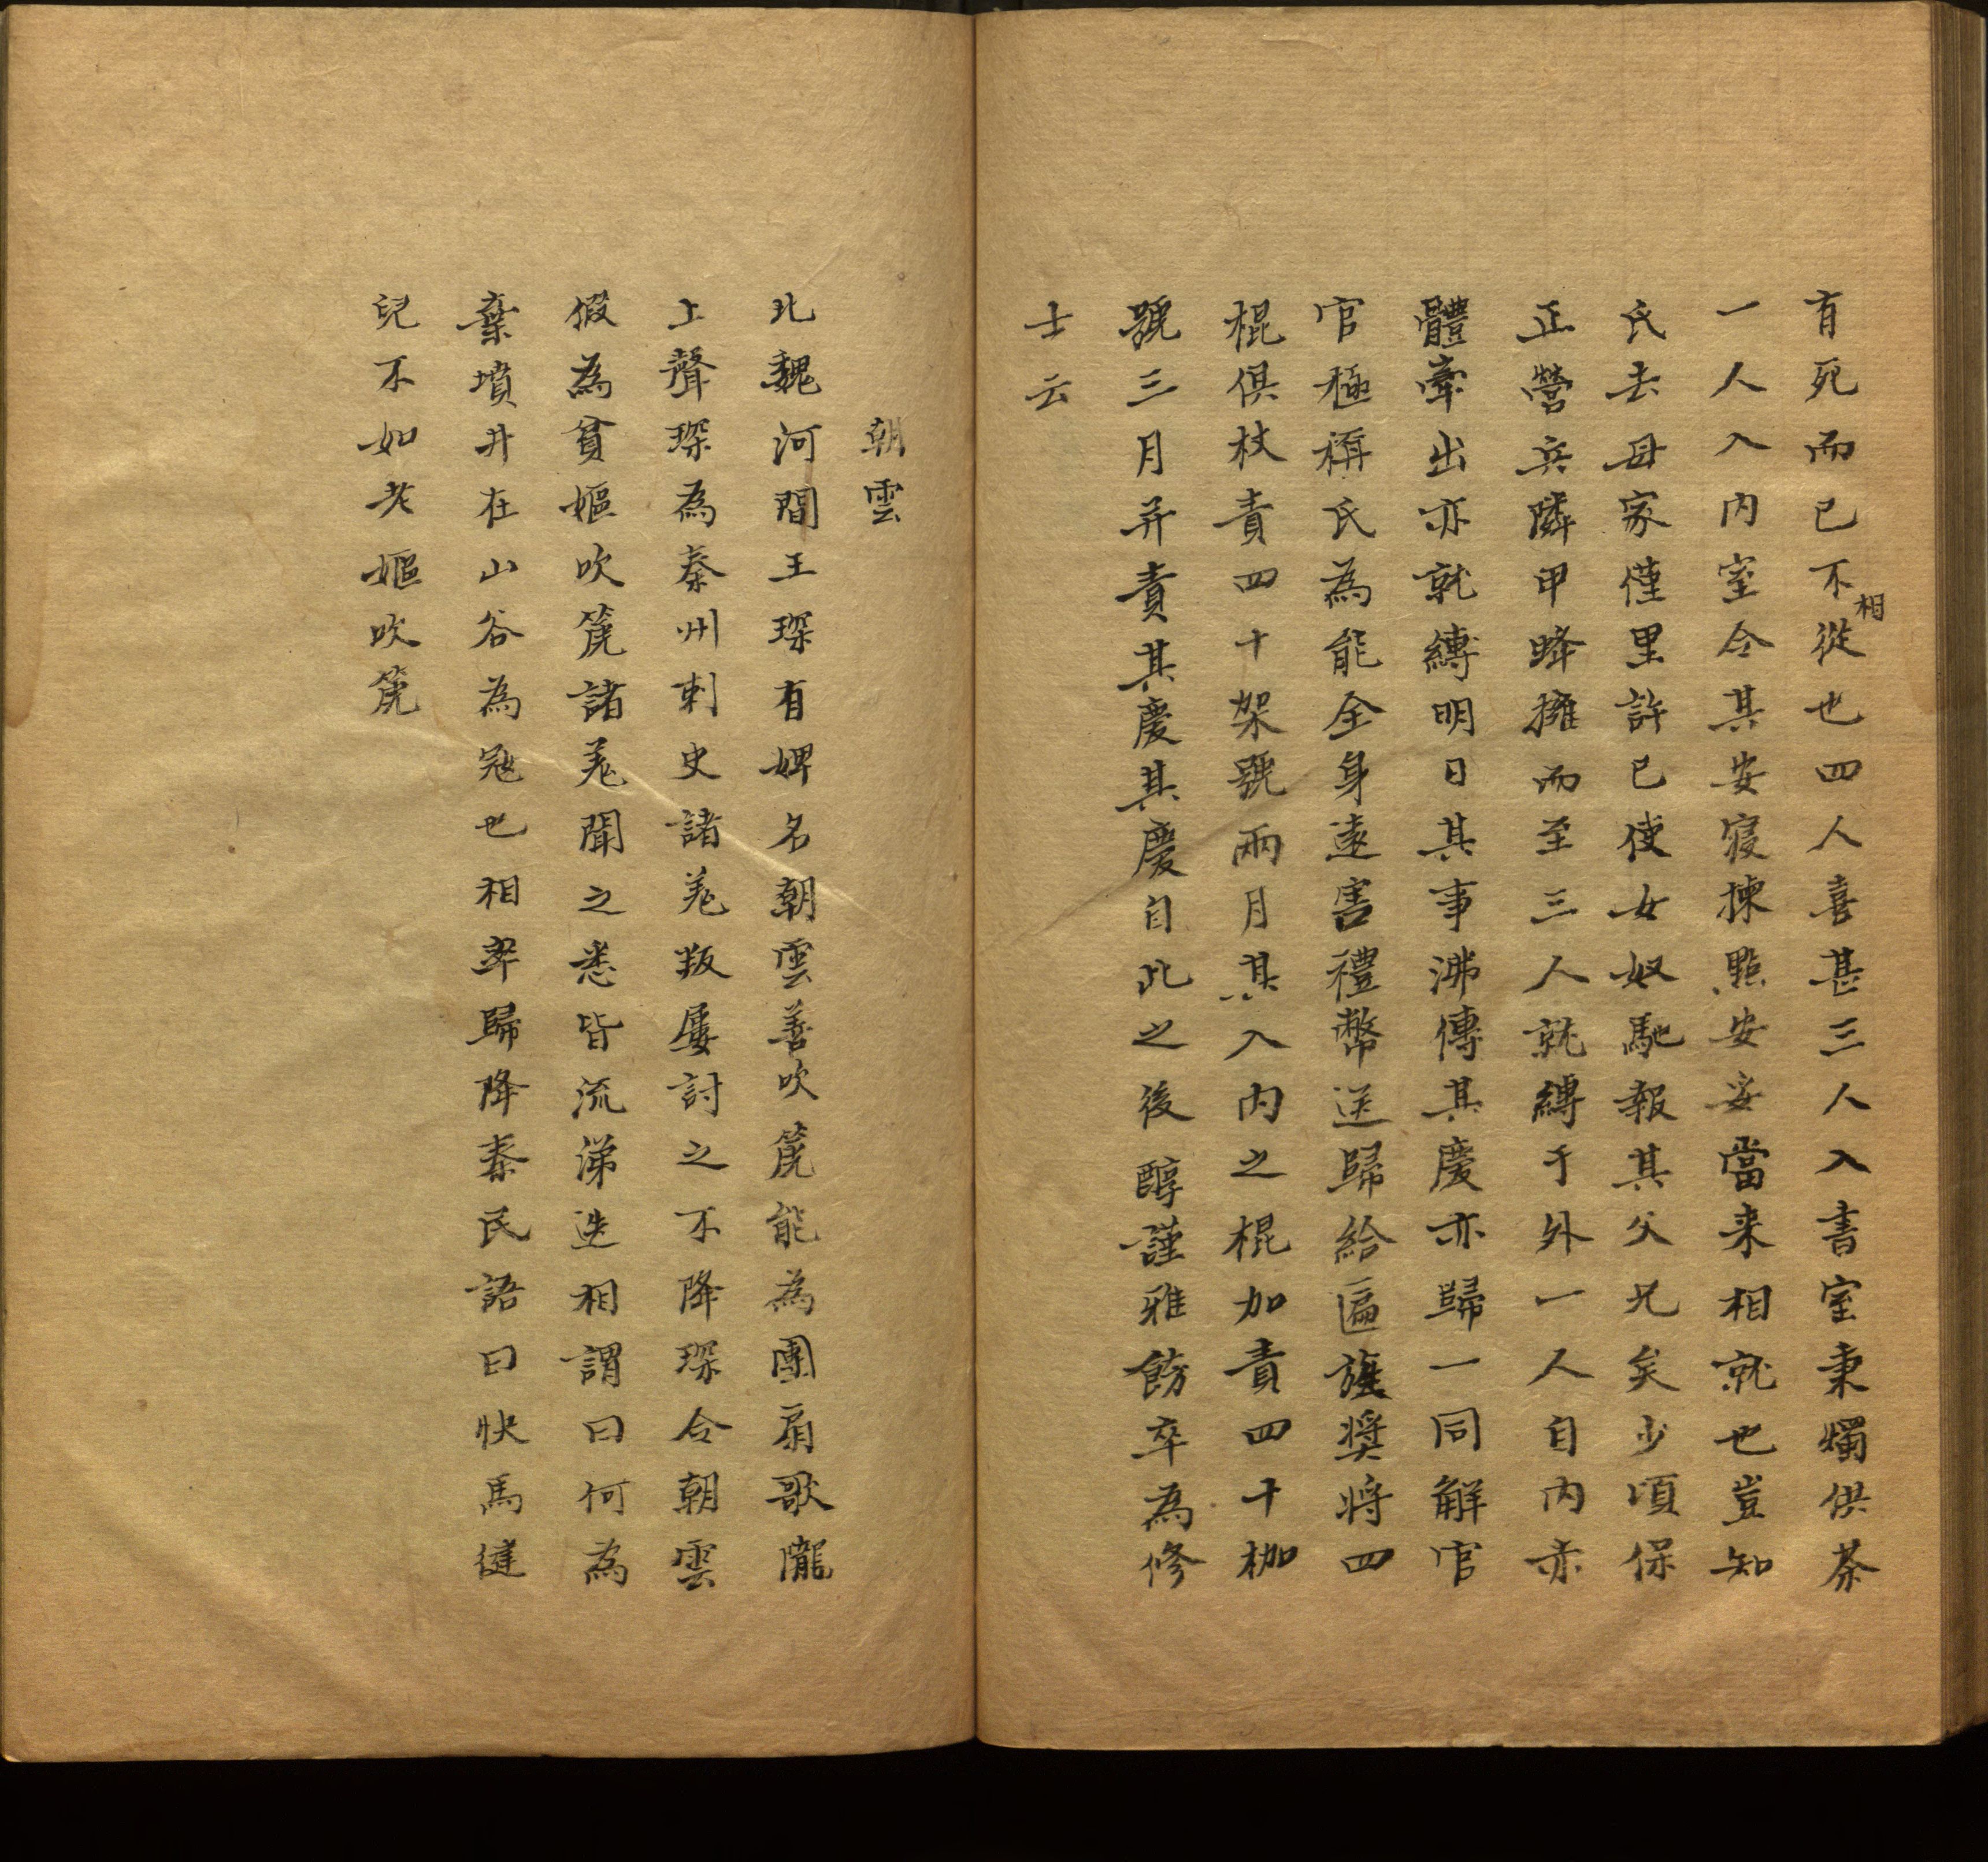 有死而已不相從也四人喜甚三人入書室秉燭供茶
一人入内室令其安寢揀點安妥當来相就也豈知
氏去母家僅里許已使女奴馳報其父兄矣少頃保
正營兵隣甲蜂擁而至三人就縛于外一人自内赤
體牽出亦就縛明日其事沸傳其慶亦歸一同解官
官極稱氏為能全身遠害禮幣送歸給匾旌奬將四
棍俱杖責四十架號兩月其入内之棍加責四十枷
號三月并責其慶其慶自此之後醇謹雅飭卒為修
士云
朝雲
北魏河間王琛有婢名朝雲善吹篪能為團扇歌隴
上聲琛為秦州刺史諸羌叛屢討之不降琛令朝雲
假為貧嫗吹篪諸羌聞之悉皆流涕迭相謂曰何為
棄墳井在山谷為寇也相率歸降秦民語曰快馬健
兒不如老嫗吹篪